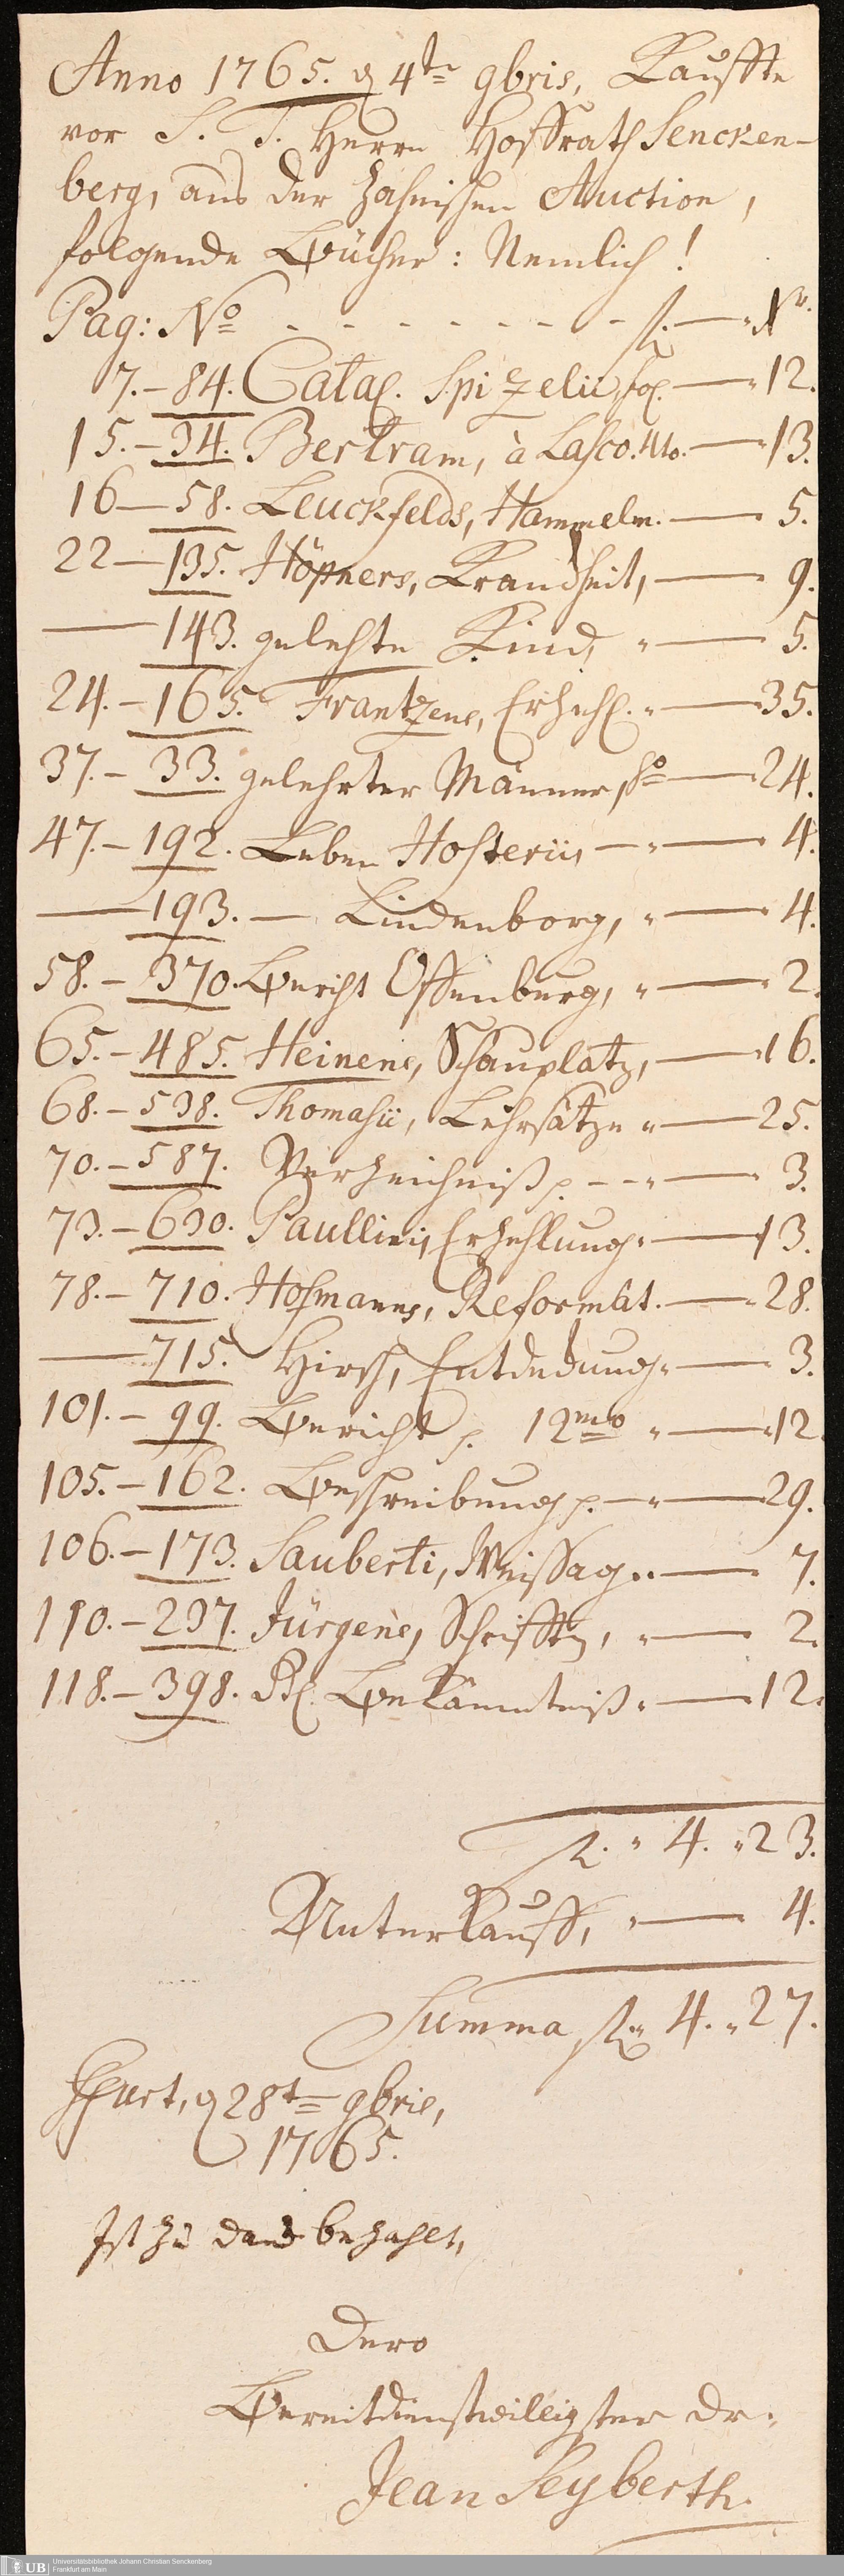 Anno 1765. d 4te 9bris, Kauffte
vor S. T. Herrn Hoffrath Sencken-
berg, aus der Hahnischen Auction,
folgende Bücher: Nemlich!
Pag: No - - - - - - - - fl. — Xr.
7. - 84. Catal. Spizelii, fol. — 12.
15. - 34. Bertram, à Lasco. 4to. — 13.
16 — 58. Leuckfelds, Hammelm. — 5.
22 — 135. Höpners, Kranckheit, — 9.
— 143. gelehrte Kind, " — 5.
24. - 165. Frantzens, Erzehl. " — 35.
37. - 33. gelehrter Männer, 8o — 24.
47. - 192. Leben Hosterii, — " — 4.
— 193. — Lindenborg, " — 4.
58. - 370. Bericht Offenburg, " — 2.
65. - 485. Heinens, Schauplatz, — 16.
68. - 538. Thomasii, Lehrsätze " — 25.
70. - 587. Verzeichniß p. - - " — 3.
73. - 630. Paullini, Erzehlung " — 13.
78. - 710. Hofmanns, Reformat. — " 28.
— 715. Hirsch, Entdeckung " — 3.
101. - 99. Bericht p. 12mo " — " 12.
105. - 162. Beschreibung p. — " — 29.
106. - 173. Sauberti, Weissag. " — 7.
110. - 237. Jürgens, Schrifften, " — 2.
118. - 398. Bekänntniß " — 12.
fl. " 4. " 23.
Unterkauff, " — 4.
Summa fl. " 4. " 27.
Ffurt, d 28t 9bris,
1765.
Ist zu danck bezahlt,
Dero
Bereitdienstwilligster Dr.
Jean Seyberth.
UB Universitätsbibliothek Johann Christian Senckenberg
Frankfurt am Main